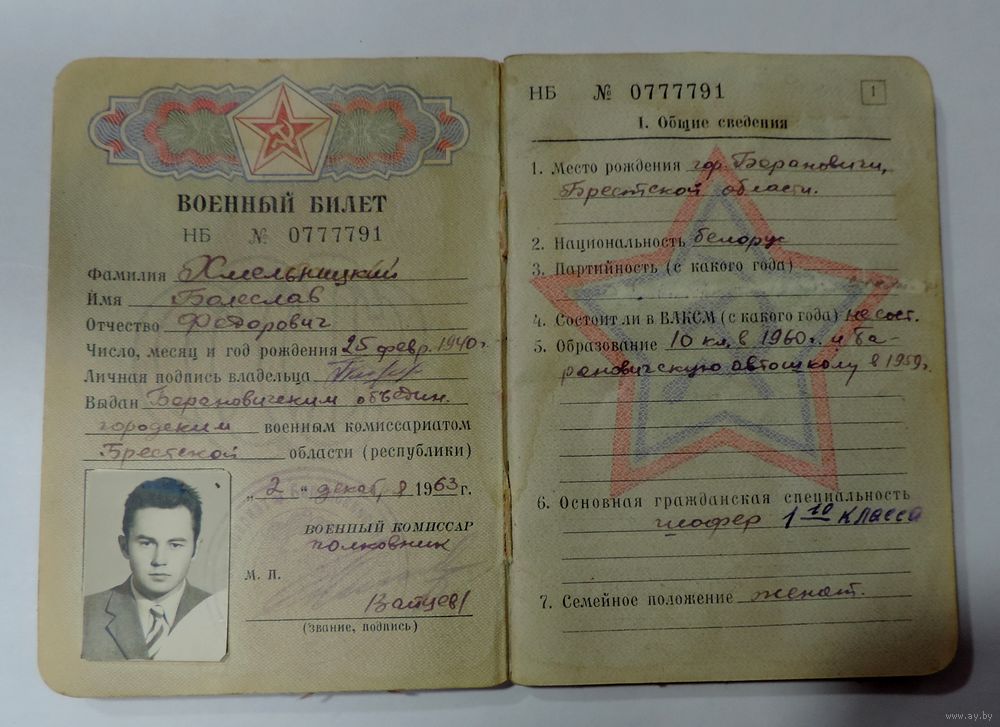 ВОЕННЫЙ БИЛЕТ
НБ № 0777791
Фамилия Хмельницкий
Имя Болеслав
Отчество Федорович
Число, месяц и год рождения 25 февр. 1940 г.
Личная подпись владельца
Выдан Барановичским объедин.
городским военным комиссариатом
Брестской области (республики)
„2“ декабря 1963 г.
ВОЕННЫЙ КОМИССАР
полковник
М. П.
Зайцев
(звание, подпись)
НБ № 0777791
1
I. Общие сведения
1. Место рождения гор. Барановичи,
Брестской области.
2. Национальность белорус
3. Партийность (с какого года)
4. Состоит ли в ВЛКСМ (с какого года) не сост.
5. Образование 10 кл. в 1960 г. и Ба-
рановичскую автошколу в 1959 г.
6. Основная гражданская специальность
шофер 1го класса
7. Семейное положение женат.
www.ay.by